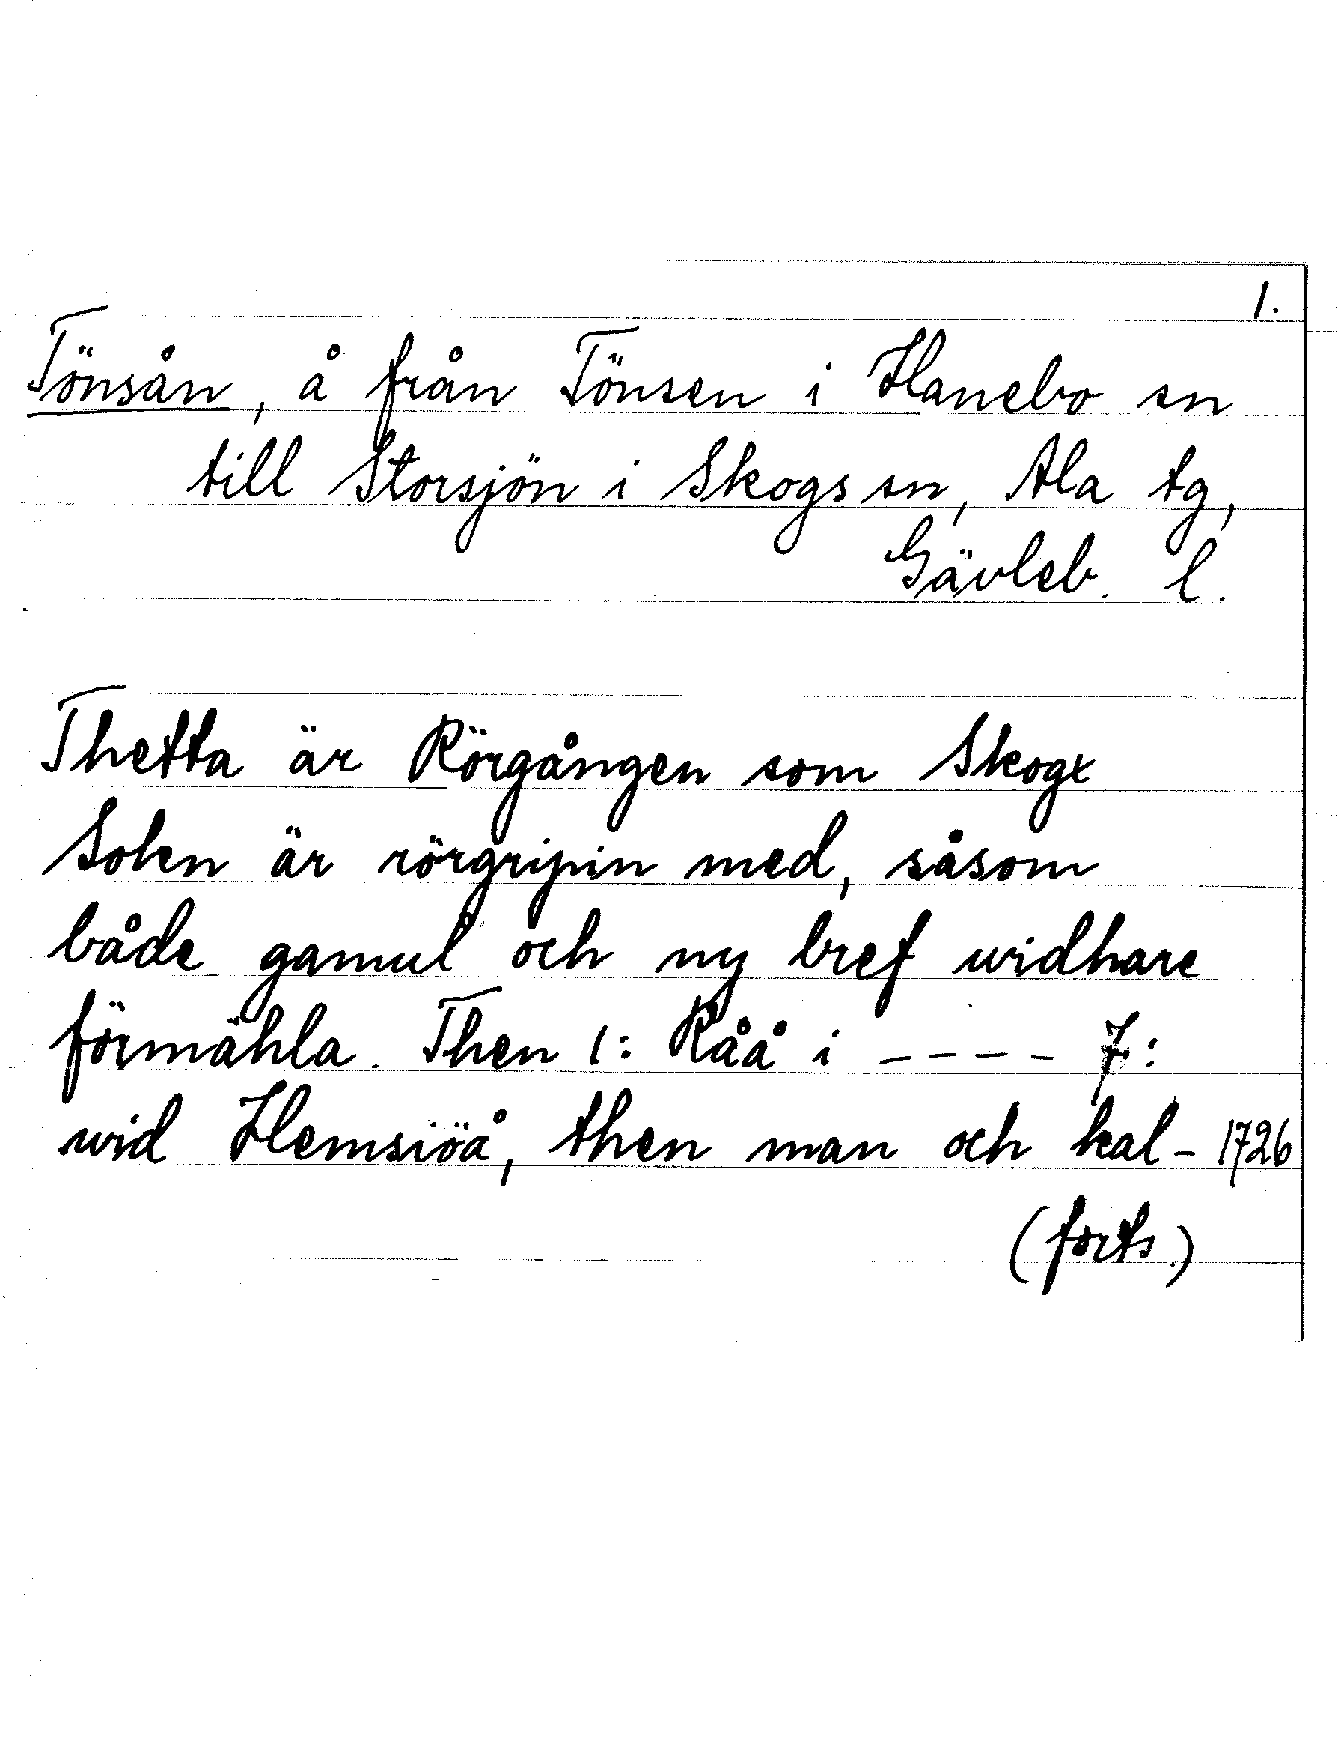 1.
Tönsån, å från Tönsen i Hanebo sn
till Storsjön i Skogs sn, Ala tg,
Gävleb. l.
Thetta är Rörgången som Skogx
Sokn är rörgripin med, såsom
både gamul och ny bref widhare
förmähla. Then 1: Råå i - - - - 7:
wid Hemsiöå, then man och kal- 1726
(forts.)